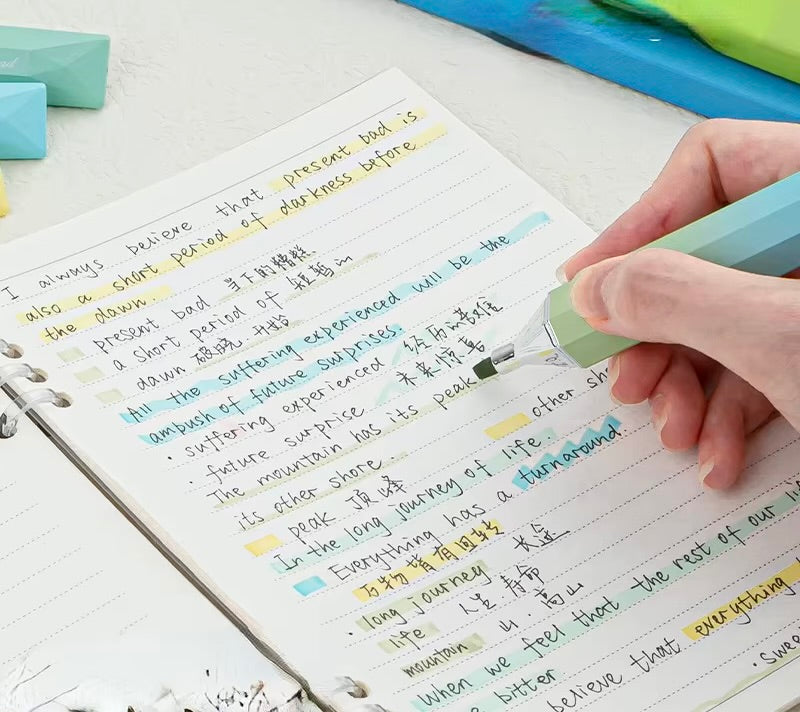 I always believe that present bad is
also a short period of darkness before
the dawn.
present bad 当下的糟糕
a short period of 短暂的
dawn 破晓 开始
All the suffering experienced will be the
ambush of future surprises.
· suffering experienced 经历的苦难
· future surprise 未来惊喜
The mountain has its peak
its other shore.
other sh
peak 顶峰
In the long journey of life.
Everything has a turnaround
万物皆有回转
· long journey 长途
life 人生 寿命
mountain 山. 高山
When we feel that the rest of our li
bitter
believe that everything
· swee